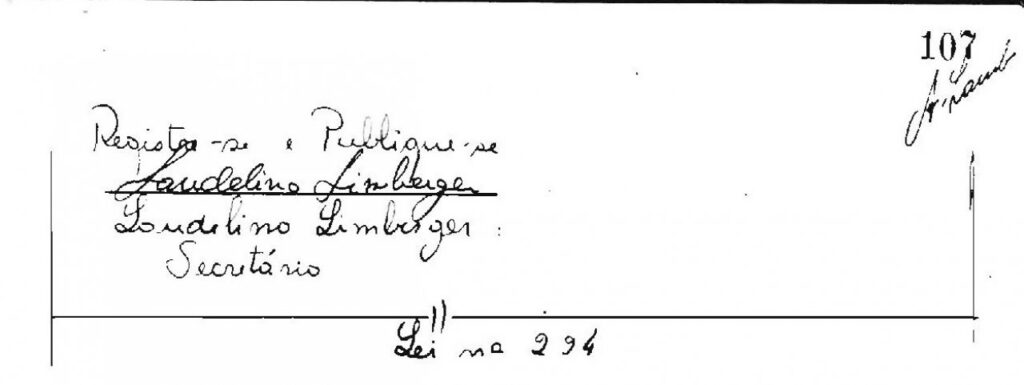 107
Registre-se e Publique-se
Laudelino Limberger
Laudelino Limberger.
Secretário
Lei nº 294